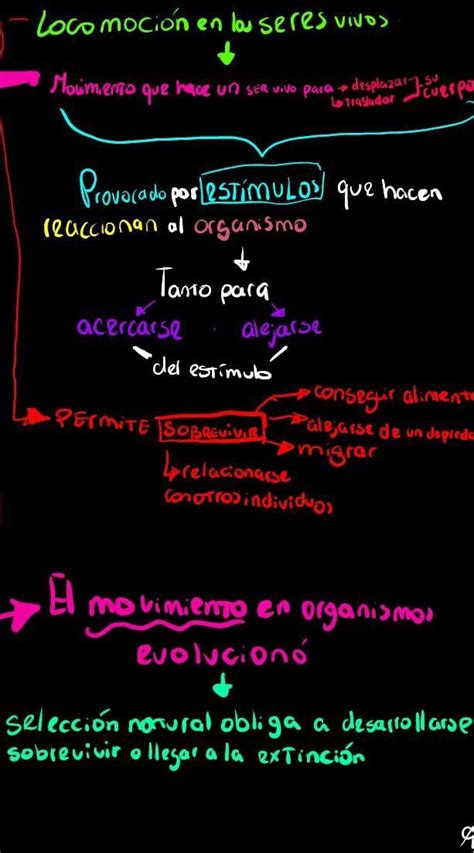 Locomoción en los seres vivos
Movimiento que hace un ser vivo para → desplazar su
↳ trasladar cuerpo
Provocado por ESTÍMULOS que hacen
reaccionan al organismo
Tanto para
acercarse alejarse
del estímulo
→ conseguir aliment
PERMITE SOBREVIVIR → alejarse de un depred
→ migrar
↳ relacionarse
con otros individuos
El movimiento en organismos
evolucionó
selección natural obliga a desarrollarse
sobrevivir o llegar a la extinción